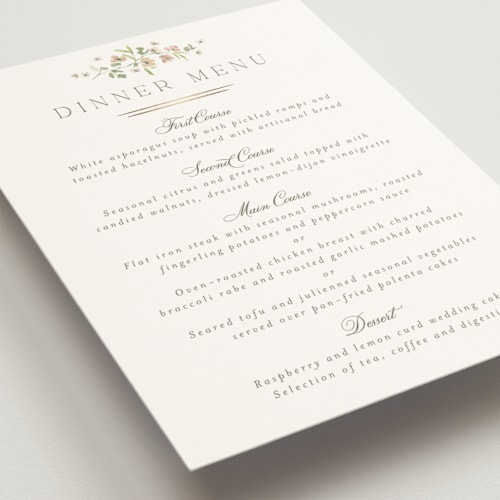 DINNER MENU
First Course
White asparagus soup with pickled ramps and
toasted hazelnuts, served with artisanal bread
Second Course
Seasonal citrus and greens salad topped with
candied walnuts, dressed lemon-dijon vinaigrette
Main Course
Flat iron steak with seasonal mushrooms, roasted
fingerling potatoes and peppercorn sauce
or
Oven-roasted chicken breast with charred
broccoli rabe and roasted garlic mashed potatoes
or
Seared tofu and julienned seasonal vegetables
served over pan-fried polenta cakes
Dessert
Raspberry and lemon curd wedding cak
Selection of tea, coffee and digesti